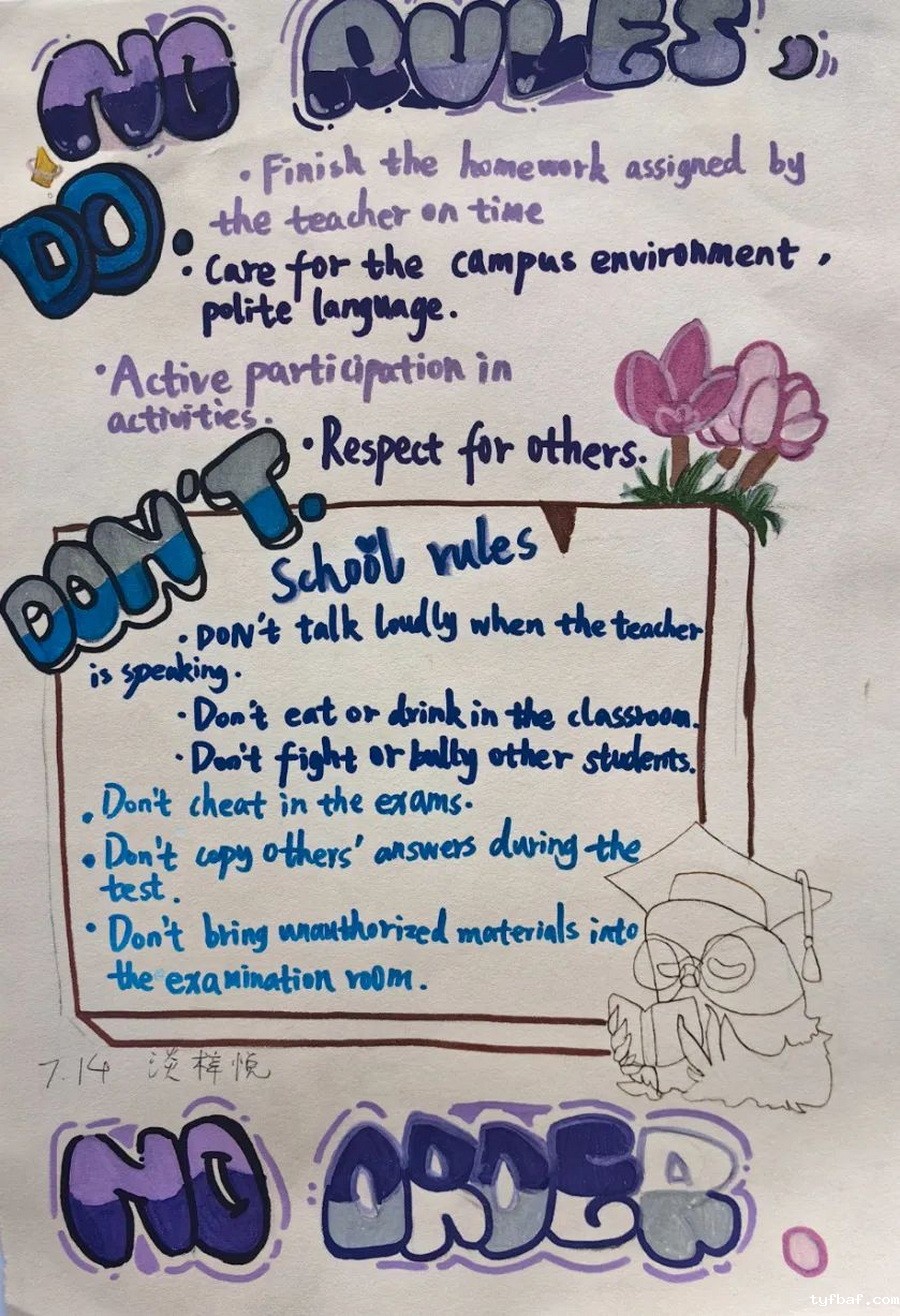 NO RULES
DO.
• Finish the homework assigned by
the teacher on time
• Care for the campus environment,
polite language.
• Active participation in
activities.
• Respect for others.
DON'T.
School rules
• DON't talk loudly when the teacher
is speaking.
• Don't eat or drink in the classroom.
• Don't fight or bully other students.
• Don't cheat in the exams.
• Don't copy others' answers during the
test.
• Don't bring unauthorized materials into
the examination room.
7.14 淡梓悦
NO ORDER
tyfbaf.com